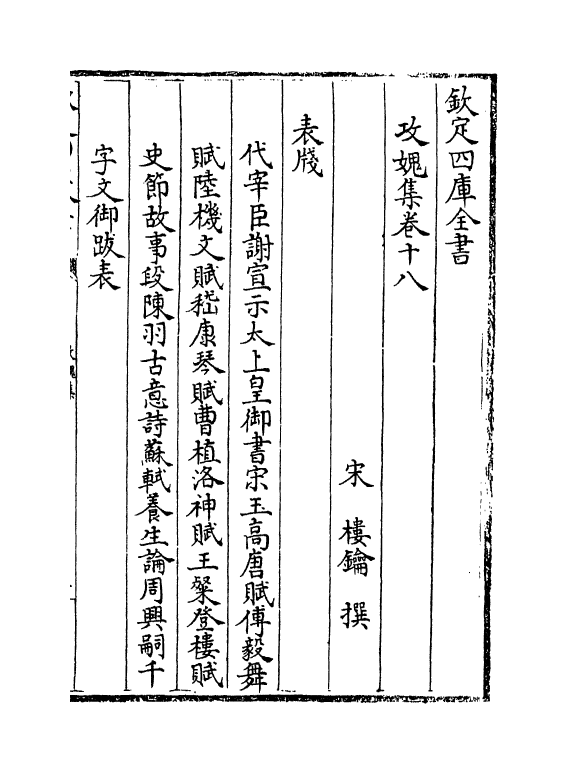 欽定四庫全書
攻媿集卷十八
宋 樓鑰 撰
表牋
代宰臣謝宣示太上皇御書宋玉高唐賦傅毅舞
賦陸機文賦嵇康琴賦曹植洛神賦王粲登樓賦
史節故事段陳羽古意詩蘇軾養生論周興嗣千
字文御跋表